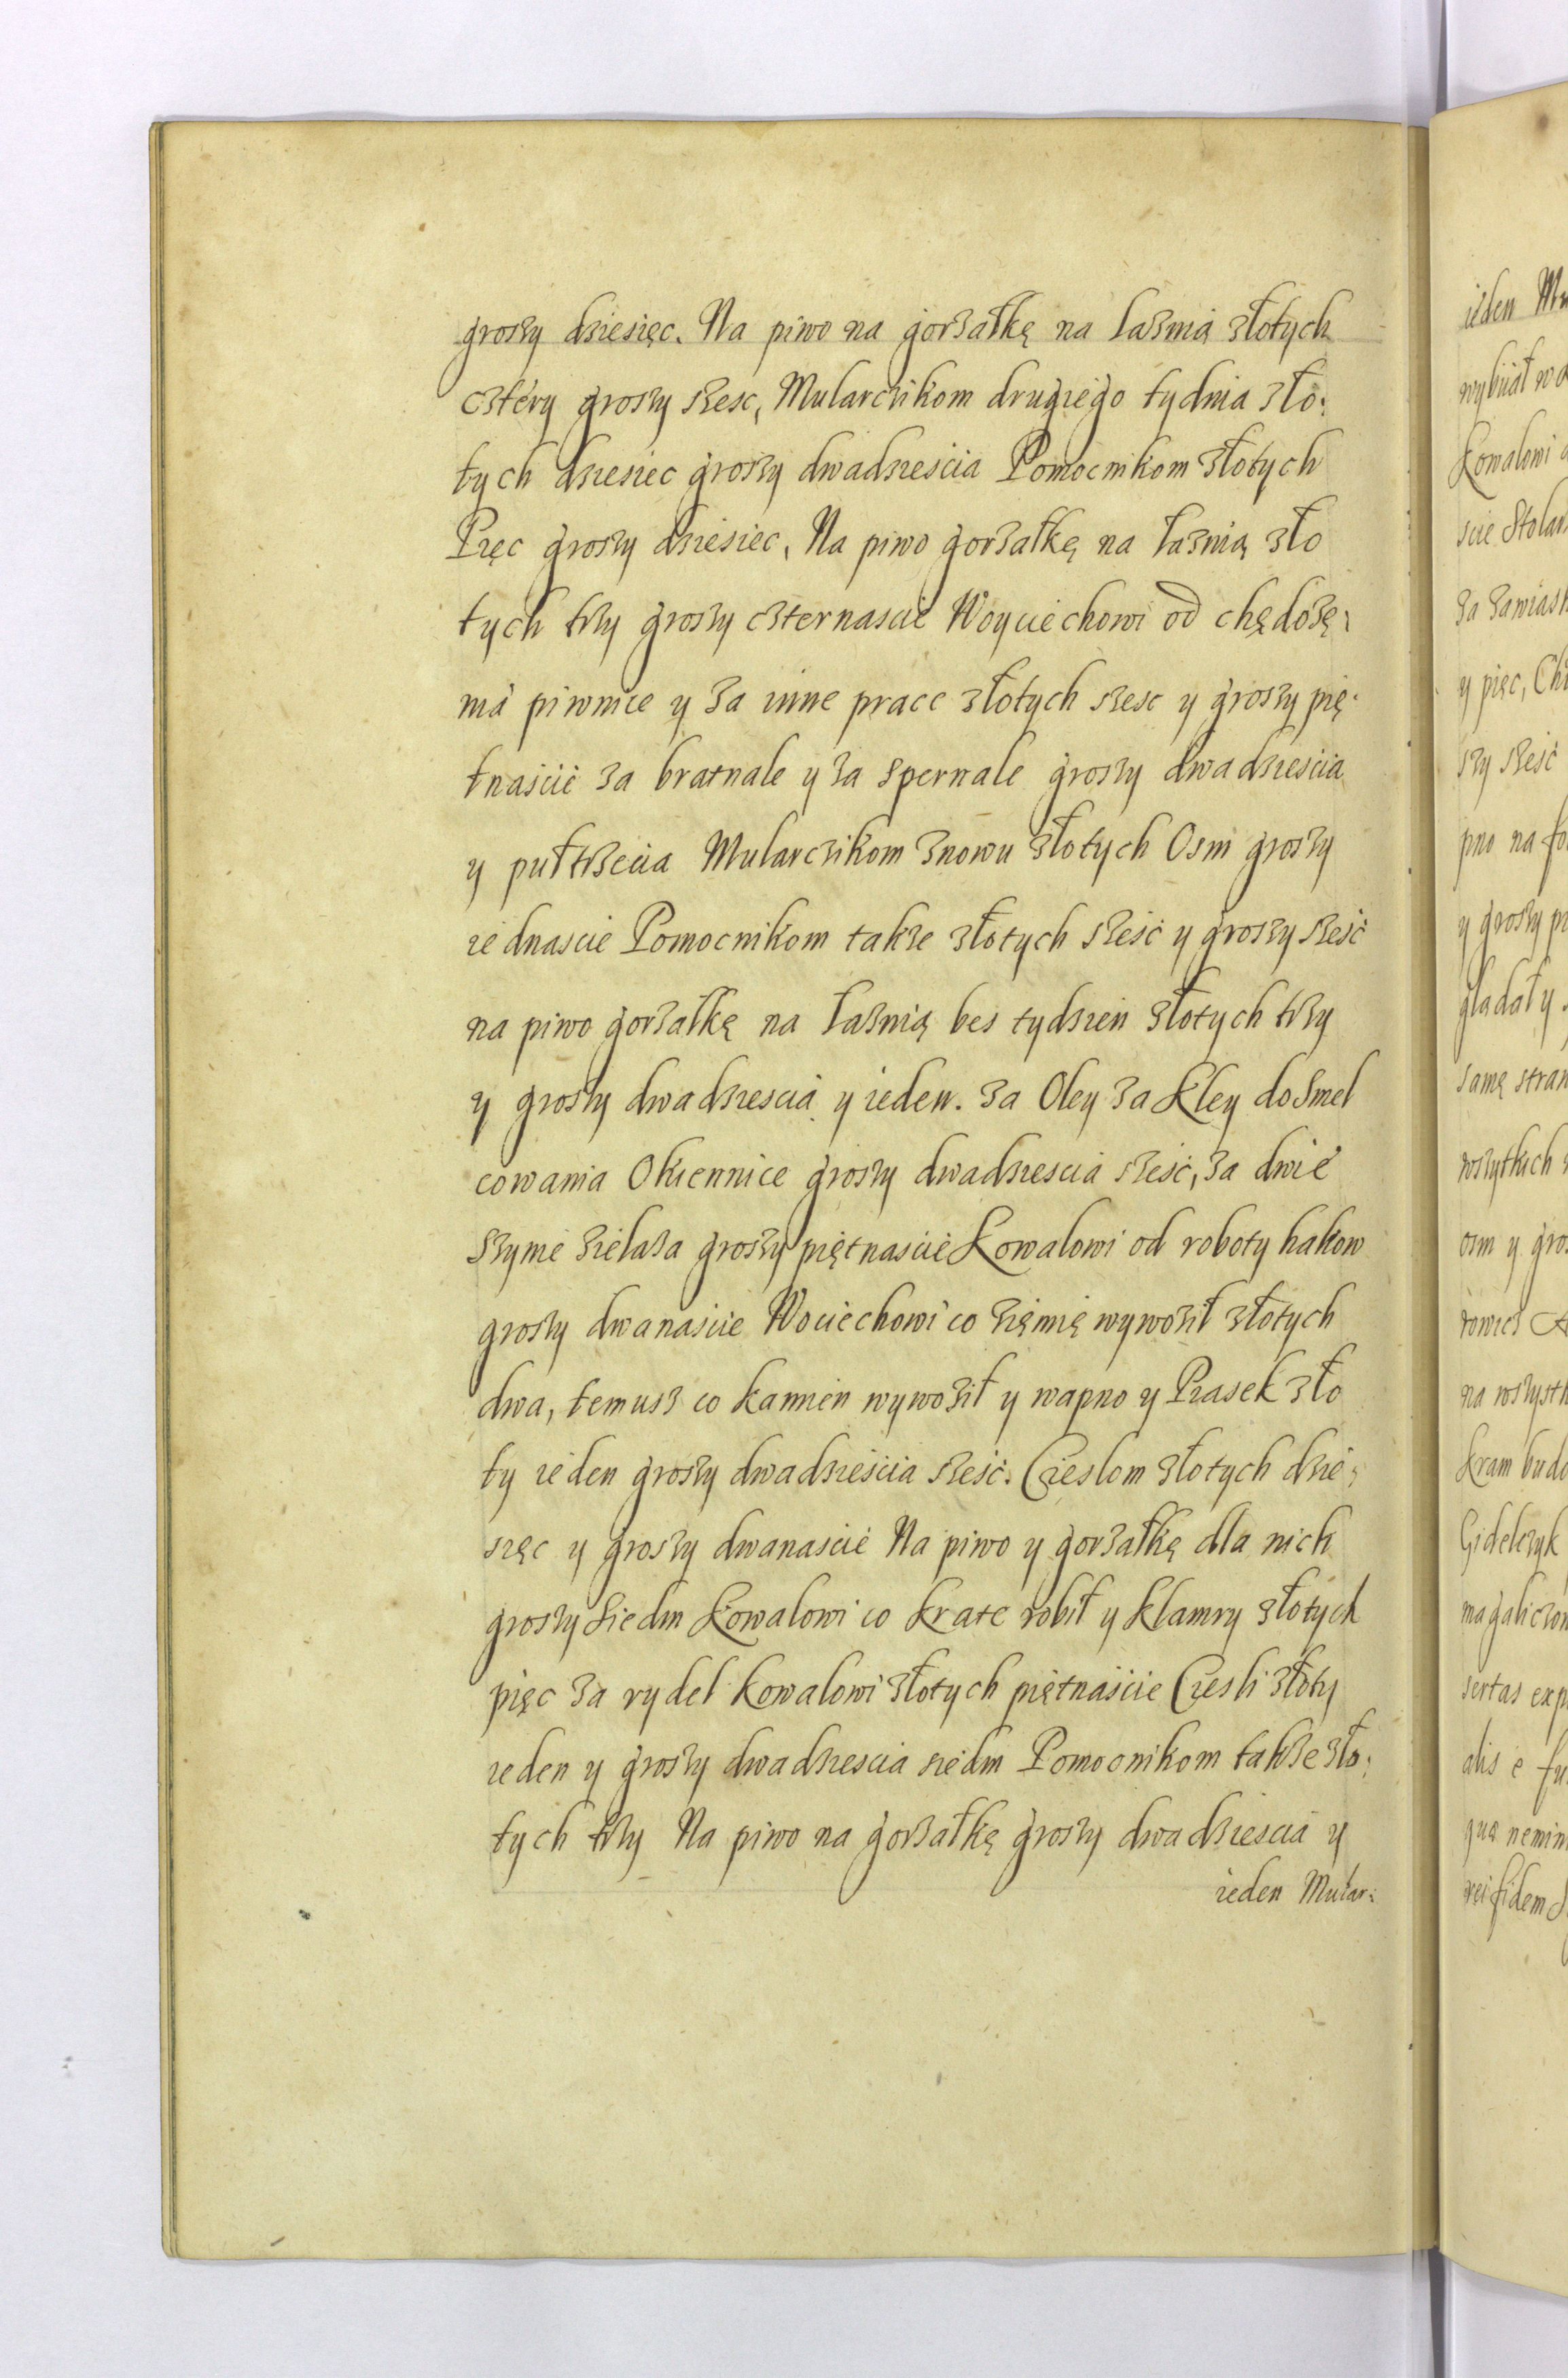 groszy dziesięc. Na piwo na gorzałkę na łaznią złotych
cztéry groszy szesc, Mularczikom drugiego tydnia zło:
tych dziesiec groszy dwadziescia Pomocnikom złotych
Pięc groszy dziesiec, Na piwo gorzałkę na łaznią zło
tych trzy groszy czternascie Woyciechowi od chędozę:
nia piwnice y za inne prace złotych szesc y groszy pię:
tnaście za bratnale y za szpernale groszy dwadziescia
y pułtrzecia Mularczikom znowu złotych Osm groszy
iednascie Pomocnikom takze złotych sześć y groszy sześć
na piwo gorzałkę na łaznią bes tydzien złotych trzy
y groszy dwadziescia y ieden. za Oley za kley do Smel
cowania Okiennice groszy dwadziescia sześć, za dwie
Szynie zielaza groszy piętnascie Kowalowi od roboty hakow
groszy dwanaście Wociechowi co zięmię wywoził złotych
dwa, temusz co kamien wywoził y wapno y Piasek zło
ty ieden groszy dwadzieścia sześć. Cieslom złotych dzie:
sięc y groszy dwanaście Na piwo y gorzałkę dla nich
groszy Siedm Kowalowi co krate robił y klamry złotych
pięc za rydel kowalowi złotych piętnaście Ciesli złoty
ieden y groszy dwadziescia siedm Pomocnikom takze zło:
tych trzy Na piwo na gorzałkę groszy dwadziescia y
ieden Mular:
ieden Mu
wybiiał wa
Kowalowi
scie Stolar
za zawiask
y pięc,
szy sześć
pno na
y groszy pi
glądał y
samę stran
wszytkich
osm y gro
na wszystk
kram budo
Gidelczyk
sertas exp
alis e fu
quæ nemin
rei fidem